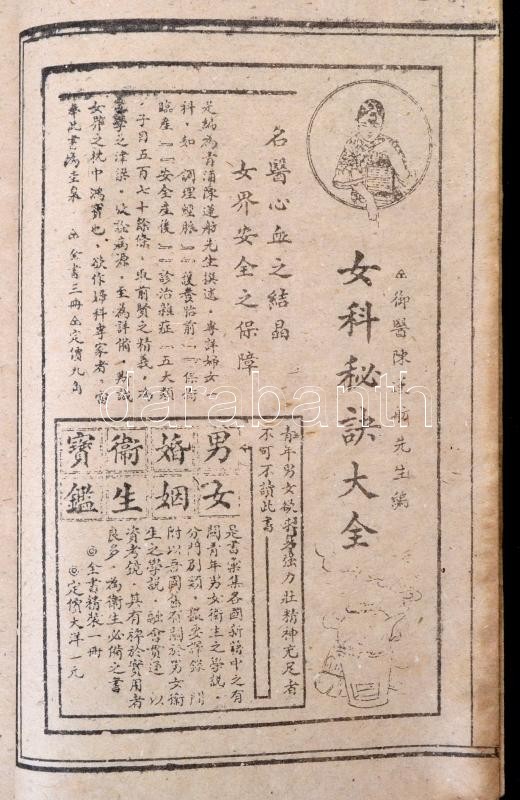 御醫陳蓮舫先生編
女科秘訣大全
名醫心血之結晶
女界安全之保障
是編為青浦陳蓮舫先生撰述。專詳婦女
科。如『調理經脈』『護養胎前』『保衛
臨產』『安全產後』『診治雜症』五大類
。子目五百七十餘條。取前賢之精義。為
後學之津梁。故論病源。至為詳備。男識
女界之枕中鴻寶也。欲作婦科專家者。當
奉此書為圭臬
全書三冊 定價九角
青年男女欲求身強力壯精神充足者
不可不讀此書
男女
婚姻
衛生
寶鑑
是書蒐集各國新籍中之有
關青年男女衛生之學說。
分門別類。撮要譯錄。間
附以吾國舊有關於男女衛
生之學說。融會貫通。以
資考鏡。其有裨於實用者
良多。為衛生必備之書
◎全書精裝一冊
◎定價大洋一元
darabanth